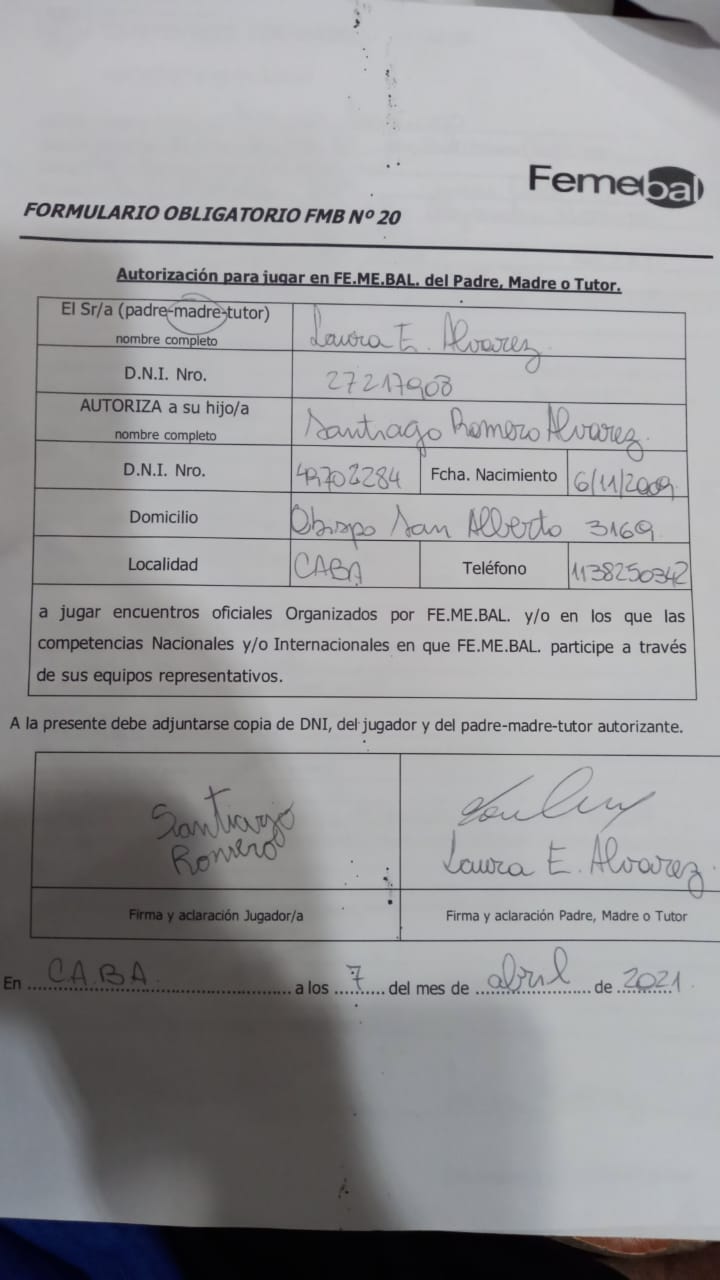 Femebal
FORMULARIO OBLIGATORIO FMB Nº 20
Autorización para jugar en FE.ME.BAL. del Padre, Madre o Tutor.
El Sr/a (padre-madre-tutor)
nombre completo
Laura E. Alvarez
D.N.I. Nro.
27217908
AUTORIZA a su hijo/a
nombre completo
Santiago Romero Alvarez.
D.N.I. Nro.
Fcha. Nacimiento
6/11/2009
Domicilio
Obispo San Alberto 3169
Localidad
CABA
Teléfono
1138250342
a jugar encuentros oficiales Organizados por FE.ME.BAL. y/o en los que las
competencias Nacionales y/o Internacionales en que FE.ME.BAL. participe a través
de sus equipos representativos.
A la presente debe adjuntarse copia de DNI, del jugador y del padre-madre-tutor autorizante.
Santiago
Romero
Laura E. Alvarez
Firma y aclaración Jugador/a
Firma y aclaración Padre, Madre o Tutor
En C.A.B.A. a los 7 del mes de abril de 2021